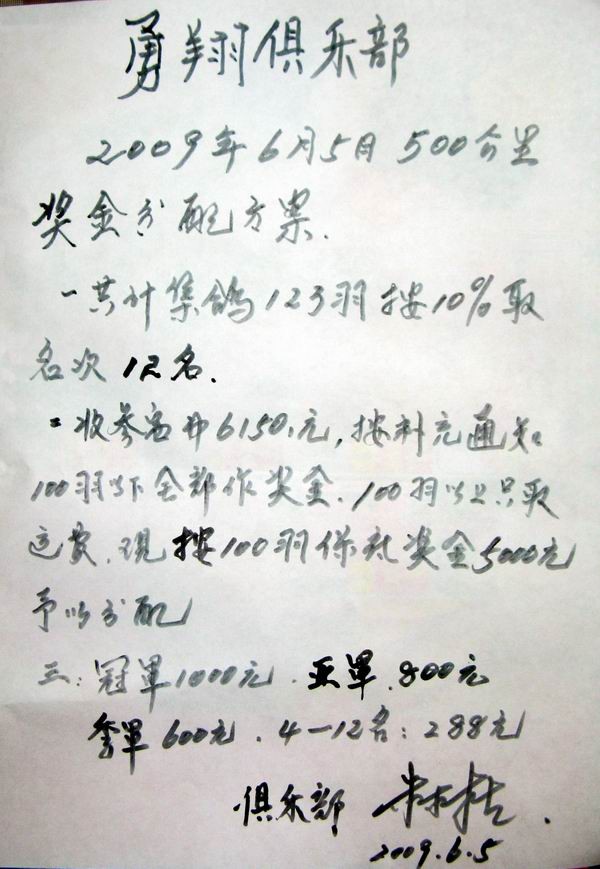 勇翔俱乐部
2009年6月5日 500公里
奖金分配方案.
一共计集鸽123羽按10%取
名次12名.
二收参赛费6150.元,按补充通知
100羽以下全部作奖金.100羽以上只取
运费.现按100羽保社奖金5000元
予以分配
三:冠军1000元.亚军.800元
季军600元.4—12名:288元
俱乐部
2009.6.5